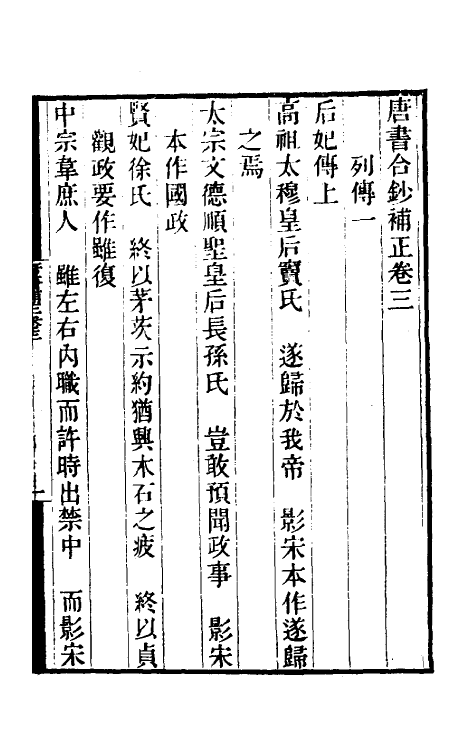 唐書合鈔補正卷三
列傳一
后妃傳上
高祖太穆皇后竇氏　遂歸於我帝　影宋本作遂歸
之焉
太宗文德順聖皇后長孫氏　豈敢預聞政事　影宋
本作國政
賢妃徐氏　終以茅茨示約猶興木石之疲　終以貞
觀政要作雖復
中宗韋庶人　雖左右內職而許時出禁中　而影宋